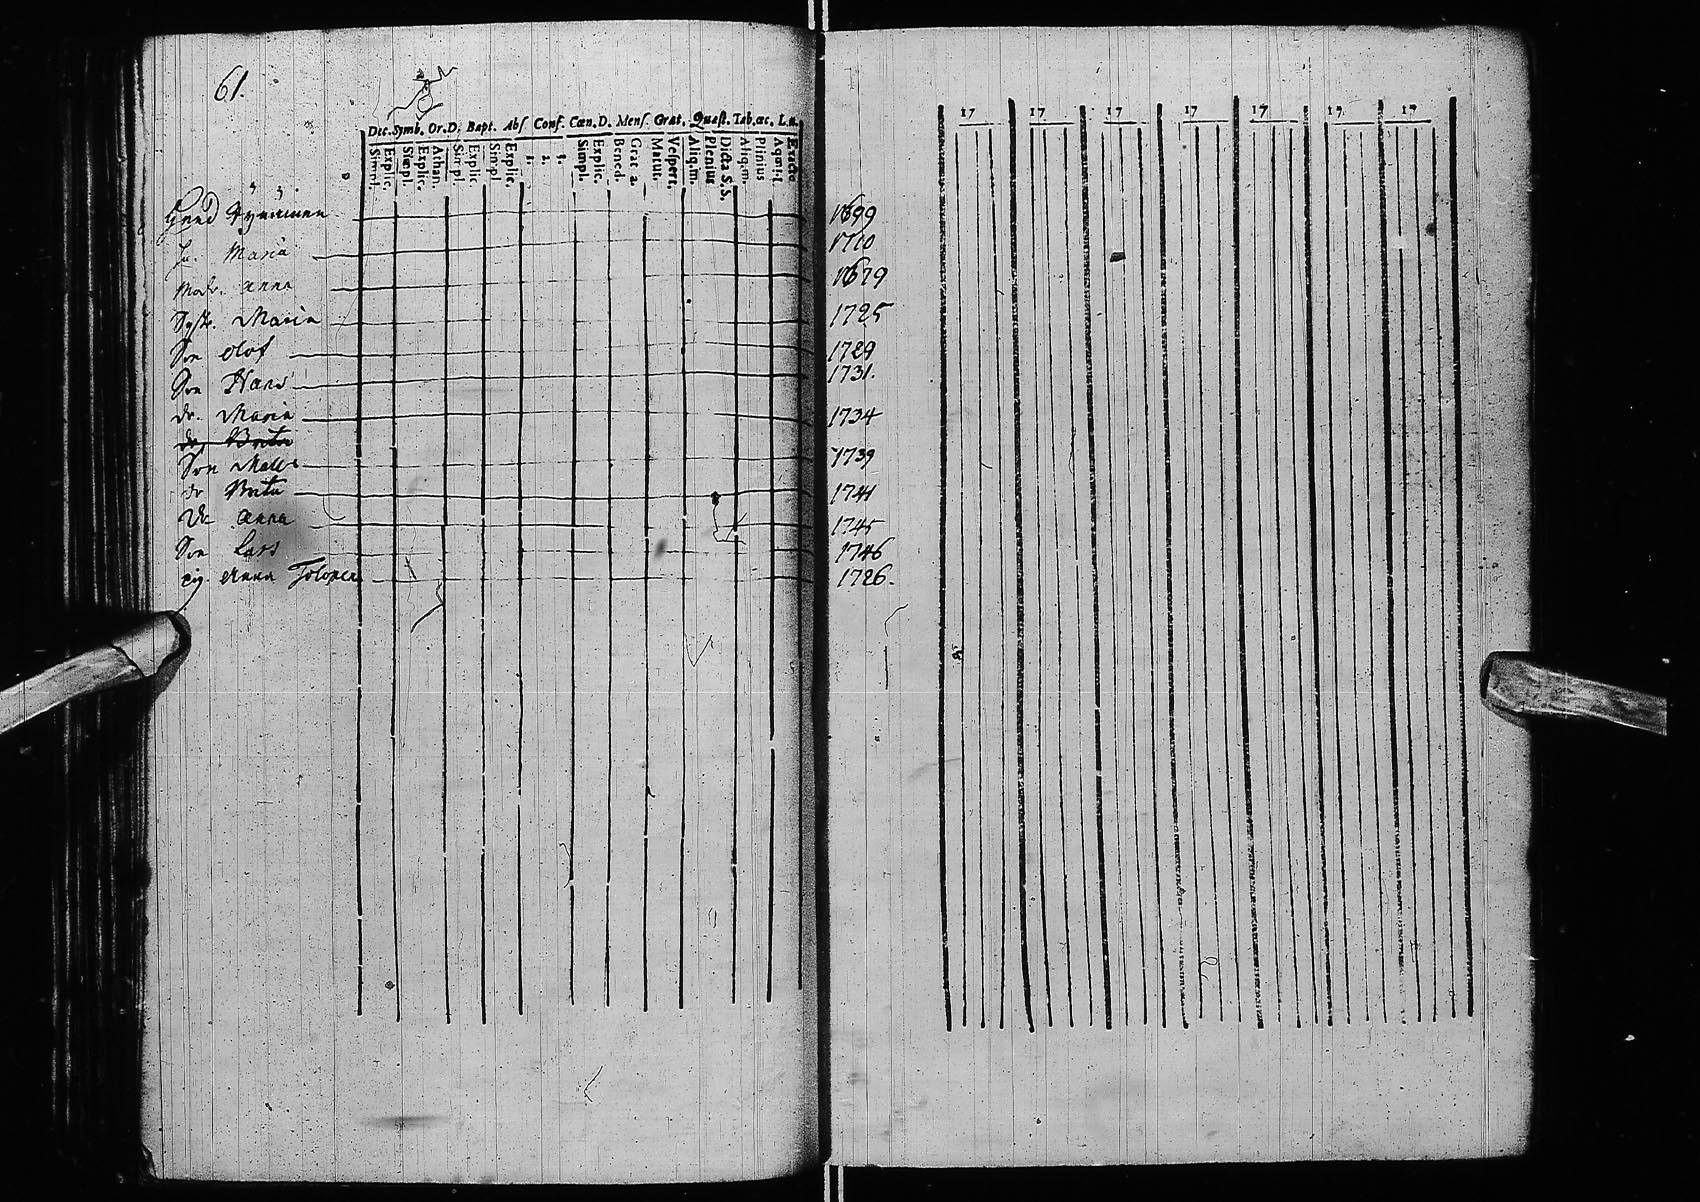 61.
Dec. Symb. Or.D. Bapt. Abs. Conf. Cœn.D. Mens. Grat. Quæst. Tab.œc. L.n.
Simpl. Explic. Simpl. Explic. Athan. Simpl. Explic. Simpl. Explic. 1. 2. 3. Simpl. Explic. Bened. Grat. a. Matut. Vesperr. Aliq.m. Plenius Dicta S.S. Aliq.m. Plinius Exacte
17 17 17 17 17 17 17
1699
hu. Maria 1710
Modr. Anna 1679
Syst. Maria 1725
Son Olof 1729
Son Hans 1731.
dr. Maria 1734
dr. Brita
Son Mats 1739
dr Brita 1741
dr Anna 1745
Son Lars 1746
pig. Anna Tolonen 1726.